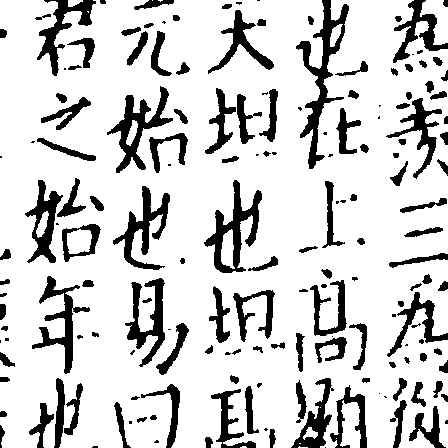 為羨三為從
也在上高顯
大坦也坦高
元始也易曰
君之始年也